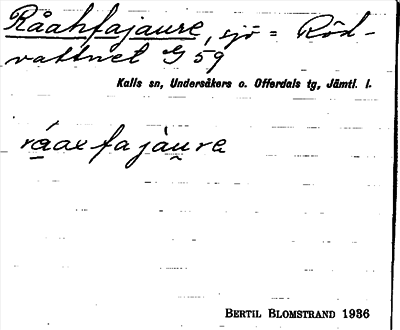 Råahfajaure, sjö = Röd-
vattnet G 59
Kalls sn, Undersåkers o. Offerdals tg, Jämtl. l.
ráaxfajàu̯re
BERTIL BLOMSTRAND 1936